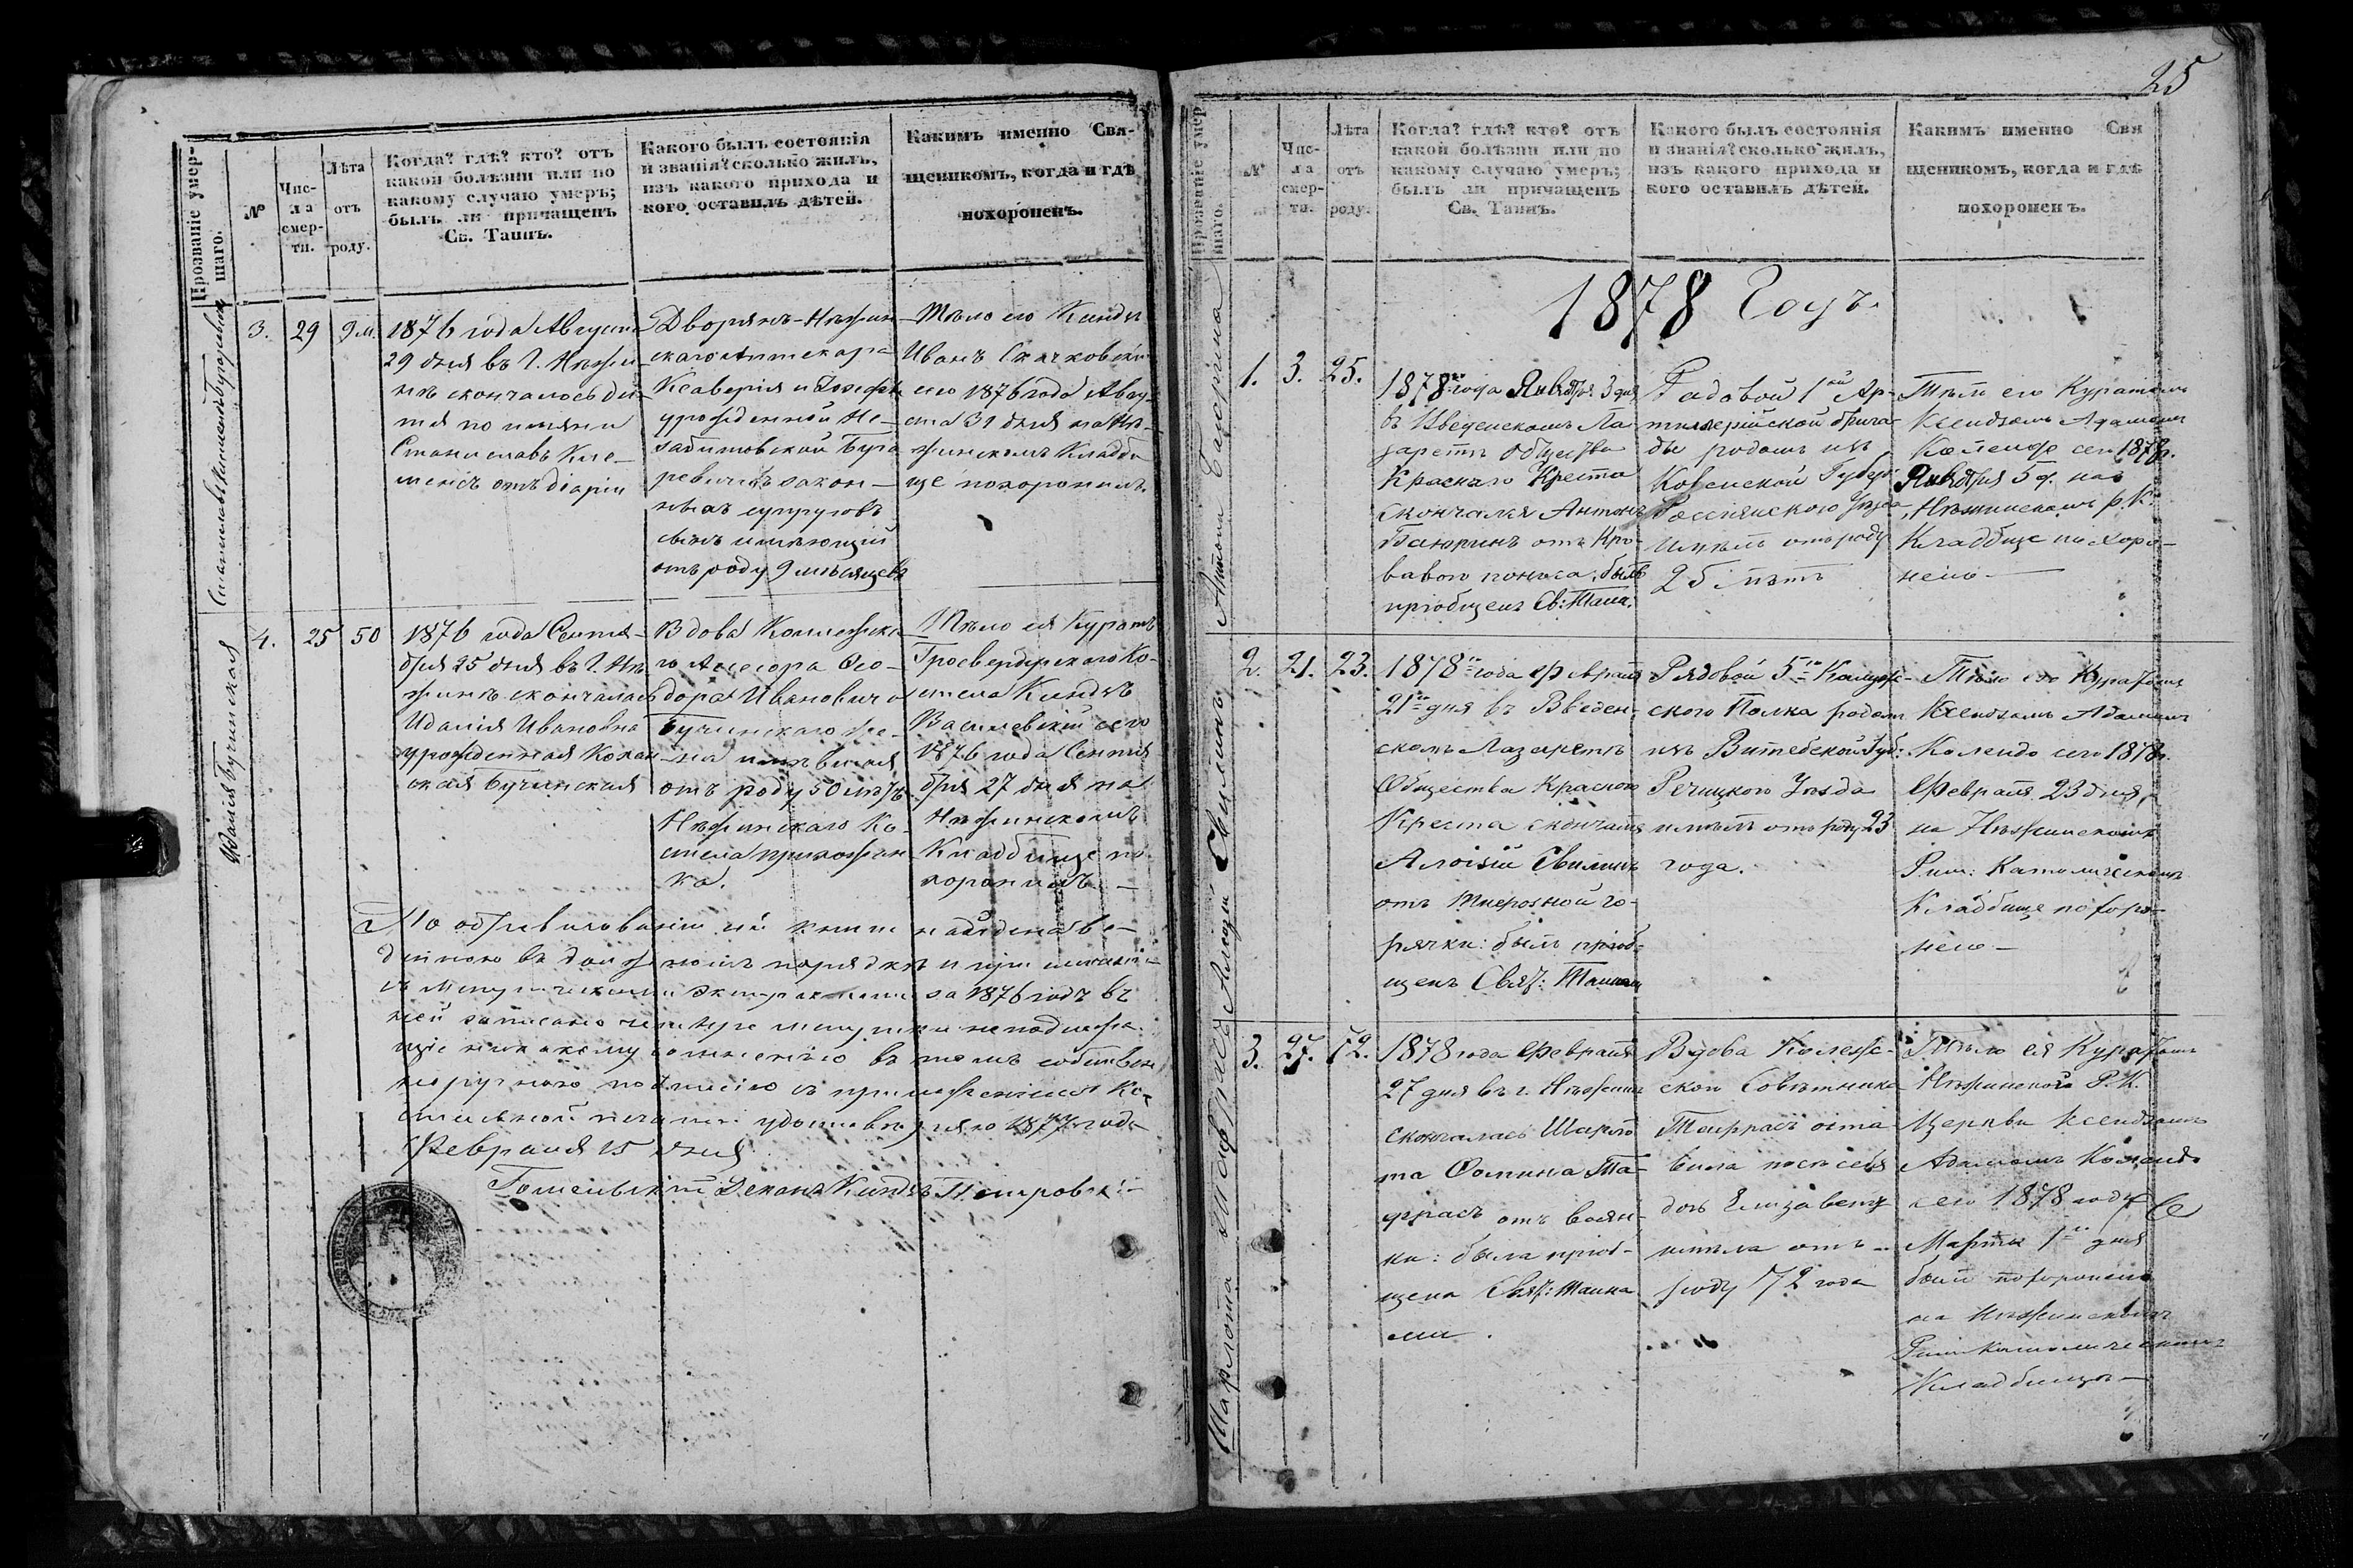 Прозваніе умер-
шаго.
№
Чис-
ла
смер-
ти.
Лѣта
отъ
роду.
Когда? гдѣ? кто? отъ
какой болѣзни или по
какому случаю умеръ;
былъ ли причащенъ
Св. Таинъ.
Какого былъ состоянія
и званія? сколько жилъ,
изъ какого прихода и
кого оставилъ дѣтей.
Какимъ именно Свя-
щенникомъ, когда и гдѣ
похороненъ.
Станиславъ Климентъ
3.
29
9 м.
1876 года Августа
29 дня въ Г. Нѣжи-
нѣ скончалось ди-
тя по имени
Станиславъ Кли-
менсъ отъ діаріи
Дворянъ-Нѣжин
скаго Аптекаря
Ксаверія и Іозефы
урожденной Не-
забитовской
ревичевъ закон-
ныхъ супруговъ
сынъ имѣющій
отъ роду 9 мѣсяцевъ
Тѣло его Ксндзъ
Иванъ
сего 1876 года Авгу-
ста 31 дня на Нѣ-
жинскомъ Кладби
ще похоронилъ.
Идалія Бучинская
4.
25
50
1876 года Сентя-
бря 25 дня въ Г. Нѣ
жинѣ скончалась
Идалія Ивановна
урожденная
ская Бучинская
Вдова Коллежска
го Ассесора Ѳео-
дора Ивановича
Бучинскаго же-
на имѣвшая
отъ роду 50 лѣтъ
Нѣжинскаго Ко-
стела прихожан
ка.
Тѣло ея Куратъ
Гросвердерскаго Ко-
стела Ксндзъ
Василевскій сего
1876 года Сентя
бря 27 дня на
Нѣжинскомъ
Кладбище по-
хоронилъ. —
По обревизованіи сей книги найдена ве-
дѣнною въ должномъ порядкѣ и при
съ Метрическими Экстрактами за 1876 годъ въ
ней записано четыре метрики неподлежа-
щіе никакому сомнѣнію въ томъ собствен
норучною подписью съ приложеніемъ Ко-
стельной печати удостовѣряю 1877 года
Февраля 15 дня
Гомельскій Деканъ Ксндзъ Петровскій
25
Прозваніе умер
шаго.
№
Чис-
ла
смер-
ти.
Лѣта
отъ
роду.
Когда? гдѣ? кто? отъ
какой болѣзни или по
какому случаю умеръ;
былъ ли причащенъ
Св. Таинъ.
Какого былъ состоянія
и званія? сколько жилъ,
изъ какого прихода и
кого оставилъ дѣтей.
Какимъ именно Свя
щенникомъ, когда и гдѣ
похороненъ.
1878 Годъ.
Антонъ
1.
3.
25.
1878го года Января 3 дня
въ Введенскомъ Ла
заретѣ Общества
Краснаго Креста
скончался Антонъ
отъ Кро-
ваваго поноса, былъ
пріобщенъ Св: Таин.
Рядовой 1ой Ар-
тиллерійской брига
ды родомъ изъ
Ковенской Губер:
Россіенскаго Уѣзда
имѣлъ отъ роду
25 лѣтъ
Тѣло его Куратомъ
Ксендзомъ Адамомъ
Колендо сего 1878г.
Января 5 д. на
Нѣжинскомъ Р. К.
Кладбище похоро-
нено —
Алоизій Свилинъ
2.
21.
23.
1878го года Февраля
21го дня въ Введен-
скомъ Лазаретѣ
Общества Краснаго
Креста скончался
Алоизій Свилинъ
отъ Тифозной го-
рячки: былъ пріоб-
щенъ Свят: Таинам
Рядовой 5го Калуж-
скаго Полка родомъ
изъ Витебской Губ:
Рѣчицкаго Уѣзда
имѣлъ отъ роду 23
года.
Тѣло его Куратомъ
Ксендзомъ Адамомъ
Колендо сего 1878г.
Февраля 23 дня,
на Нѣжинскомъ
Рим: Католическомъ
Кладбище похоро-
нено —
Шарлота
3.
27.
72.
1878 года Февраля
27 дня въ г. Нѣжинѣ
скончалась Шарло
та Ѳомина Та-
фрасъ отъ водян-
ки: была пріоб-
щена Свят: Таина
ми.
Вдова Колеж-
скаго Совѣтника
оста
вила послѣ себя
дочь Елизавету
имѣла отъ
роду 72 года
Тѣло ея Куратомъ
Нѣжинской Р. К.
Церкви Ксендзомъ
Адамомъ Колендо
сего 1878 года
Марта 1го дня
было похоронено
на Нѣжинскомъ
Римкатолическомъ
Кладбищѣ —